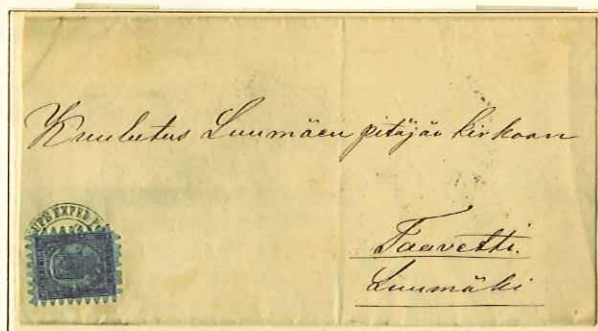 Kuulutus Luumäen pitäjän kirkoon
Taavetti.
Luumäki
EXPED.